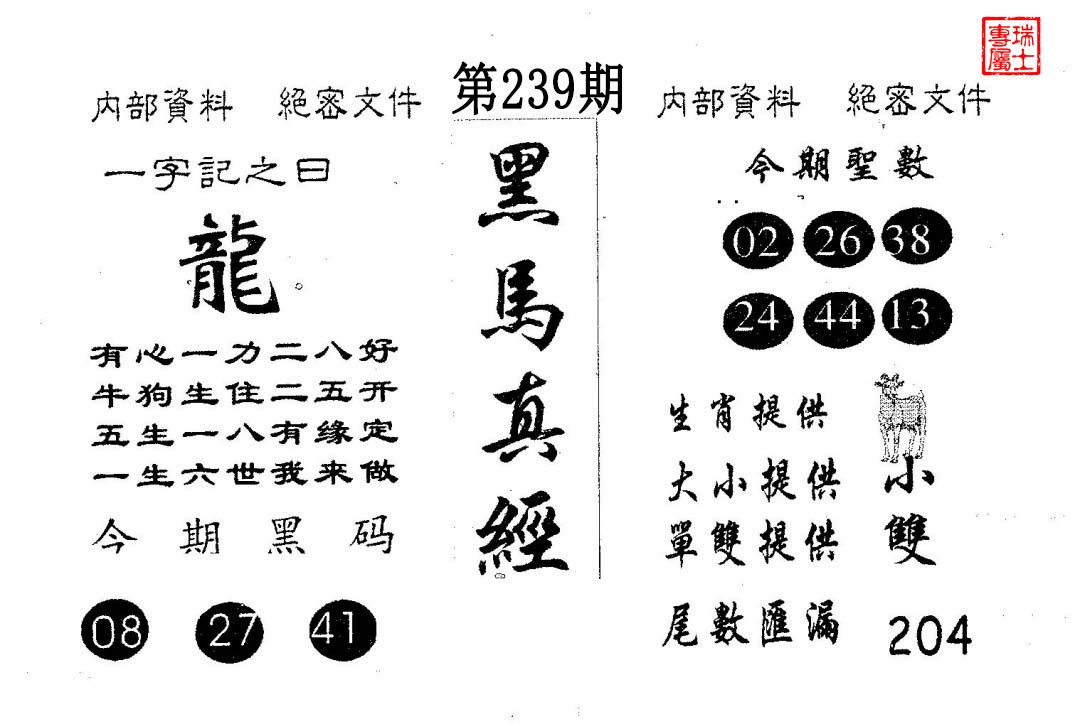 瑞士
專屬
第239期
内部資料 絕密文件
内部資料 絕密文件
一字記之曰
龍
有心一力二八好
牛狗生住二五开
五生一八有缘定
一生六世我来做
今期黑码
08 27 41
黑馬真經
今期聖數
02 26 38
24 44 13
生肖提供
大小提供 小
單雙提供 雙
尾數匯漏 204